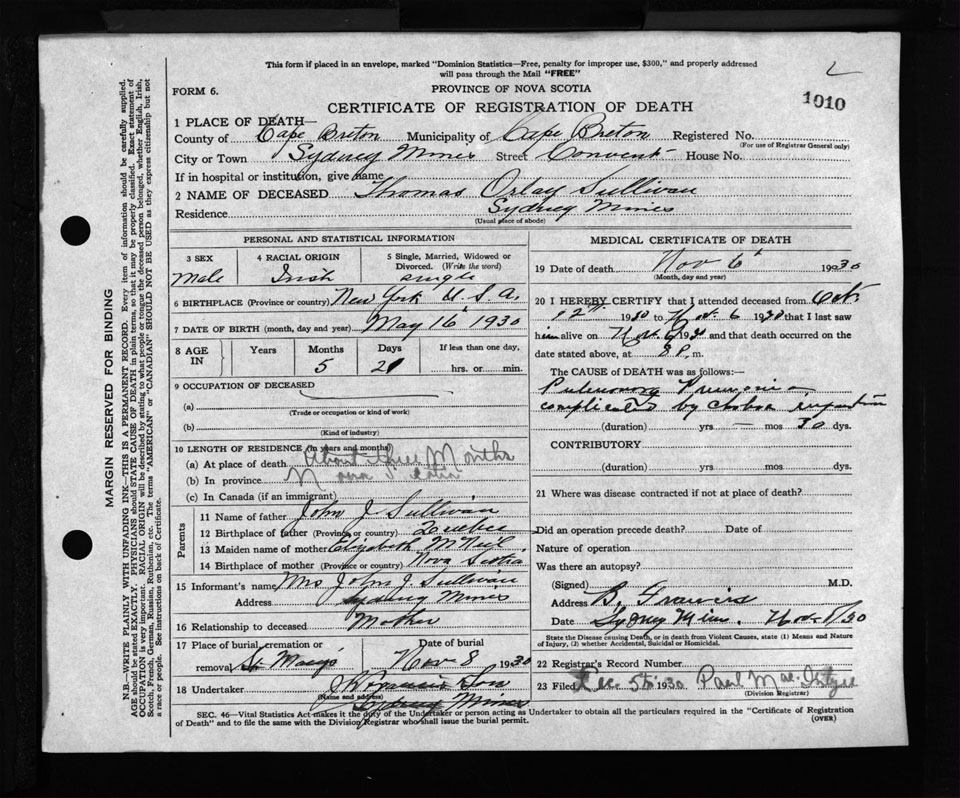 This form if placed in an envelope, marked "Dominion Statistics—Free, penalty for improper use, $300," and properly addressed
will pass through the Mail "FREE"
FORM 6.
PROVINCE OF NOVA SCOTIA
1010
CERTIFICATE OF REGISTRATION OF DEATH
1 PLACE OF DEATH—
County of Cape Breton Municipality of Cape Breton Registered No.
(For use of Registrar General only)
City or Town Sydney Mines Street Convent House No.
If in hospital or institution, give name
2 NAME OF DECEASED Thomas Orlay Sullivan
Residence Sydney Mines
(Usual place of abode)
PERSONAL AND STATISTICAL INFORMATION
3 SEX 4 RACIAL ORIGIN 5 Single, Married, Widowed or
Divorced. (Write the word)
Male Irish single
6 BIRTHPLACE (Province or country) New York U.S.A.
7 DATE OF BIRTH (month, day and year) May 16 1930
8 AGE IN Years Months Days If less than one day.
5 21 hrs. or min.
9 OCCUPATION OF DECEASED
(a)
(Trade or occupation or kind of work)
(b)
(Kind of industry)
10 LENGTH OF RESIDENCE (in years and months)
(a) At place of death About three Months
(b) In province Nova Scotia
(c) In Canada (if an immigrant)
Parents
11 Name of father John J Sullivan
12 Birthplace of father (Province or country) Quebec
13 Maiden name of mother Elizabeth McNeil
14 Birthplace of mother (Province or country) Nova Scotia
15 Informant's name Mrs John J. Sullivan
Address Sydney Mines
16 Relationship to deceased Mother
17 Place of burial, cremation or Date of burial
removal St Mary's Nov 8 1930
18 Undertaker Son
(Name and address)
Sydney Mines
MEDICAL CERTIFICATE OF DEATH
19 Date of death Nov 6 1930
(Month, day and year)
20 I HEREBY CERTIFY that I attended deceased from Oct.
12th 1930 to Nov. 6 1930 that I last saw
him alive on Nov. 6 1930 and that death occurred on the
date stated above, at 8 P. m.
The CAUSE of DEATH was as follows:—
Pulmonary Pneumonia
complicated by
(duration) yrs — mos 30 dys.
CONTRIBUTORY
(duration) yrs. mos. dys.
21 Where was disease contracted if not at place of death?
Did an operation precede death? Date of
Nature of operation
Was there an autopsy?
(Signed) M.D.
Address B. Francis
Date Sydney Mines. Nov 8/30
State the Disease causing Death, or in death from Violent Causes, state (1) Means and Nature
of Injury, (2) whether Accidental, Suicidal or Homicidal.
22 Registrar's Record Number
23 Filed Dec 5th 1930 Paul Mac
(Division Registrar)
SEC. 46—Vital Statistics Act makes it the duty of the Undertaker or person acting as Undertaker to obtain all the particulars required in the "Certificate of Registration
of Death" and to file the same with the Division Registrar who shall issue the burial permit.
(OVER)
MARGIN RESERVED FOR BINDING
N.B.—WRITE PLAINLY WITH UNFADING INK—THIS IS A PERMANENT RECORD. Every item of information should be carefully supplied.
AGE should be stated EXACTLY. PHYSICIANS should STATE CAUSE OF DEATH in plain terms, so that it may be properly classified. Exact statement of
OCCUPATION is very important. RACIAL ORIGIN will be described by stating to what people or tongue the deceased person belonged, whether English, Irish,
Scotch, French, German, Russian, Ruthenian, etc. The terms "AMERICAN" or "CANADIAN" SHOULD NOT BE USED as they express citizenship but not
a race or people. See instructions on back of Certificate.